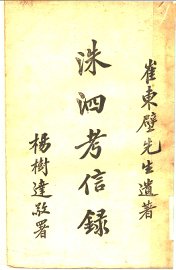 崔東壁先生遺著
洙泗考信錄
楊樹達敬署